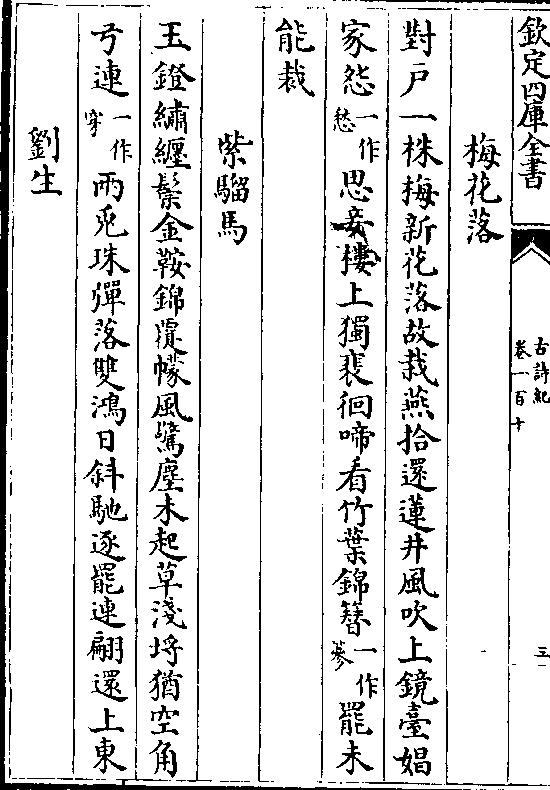 欽定四庫全書
古詩紀
卷一百十
三
梅花落
對戶一株梅新花落故栽燕拾還蓮井風吹上鏡臺娼
家怨一作愁思妾樓上獨裴徊啼看竹葉錦簪一作篸罷未
能裁
紫騮馬
玉鐙繡纏鬃金鞍錦覆幪風驚塵未起草淺埒猶空角
弓連一作穿兩兎珠彈落雙鴻日斜馳逐罷連翩還上東
劉生